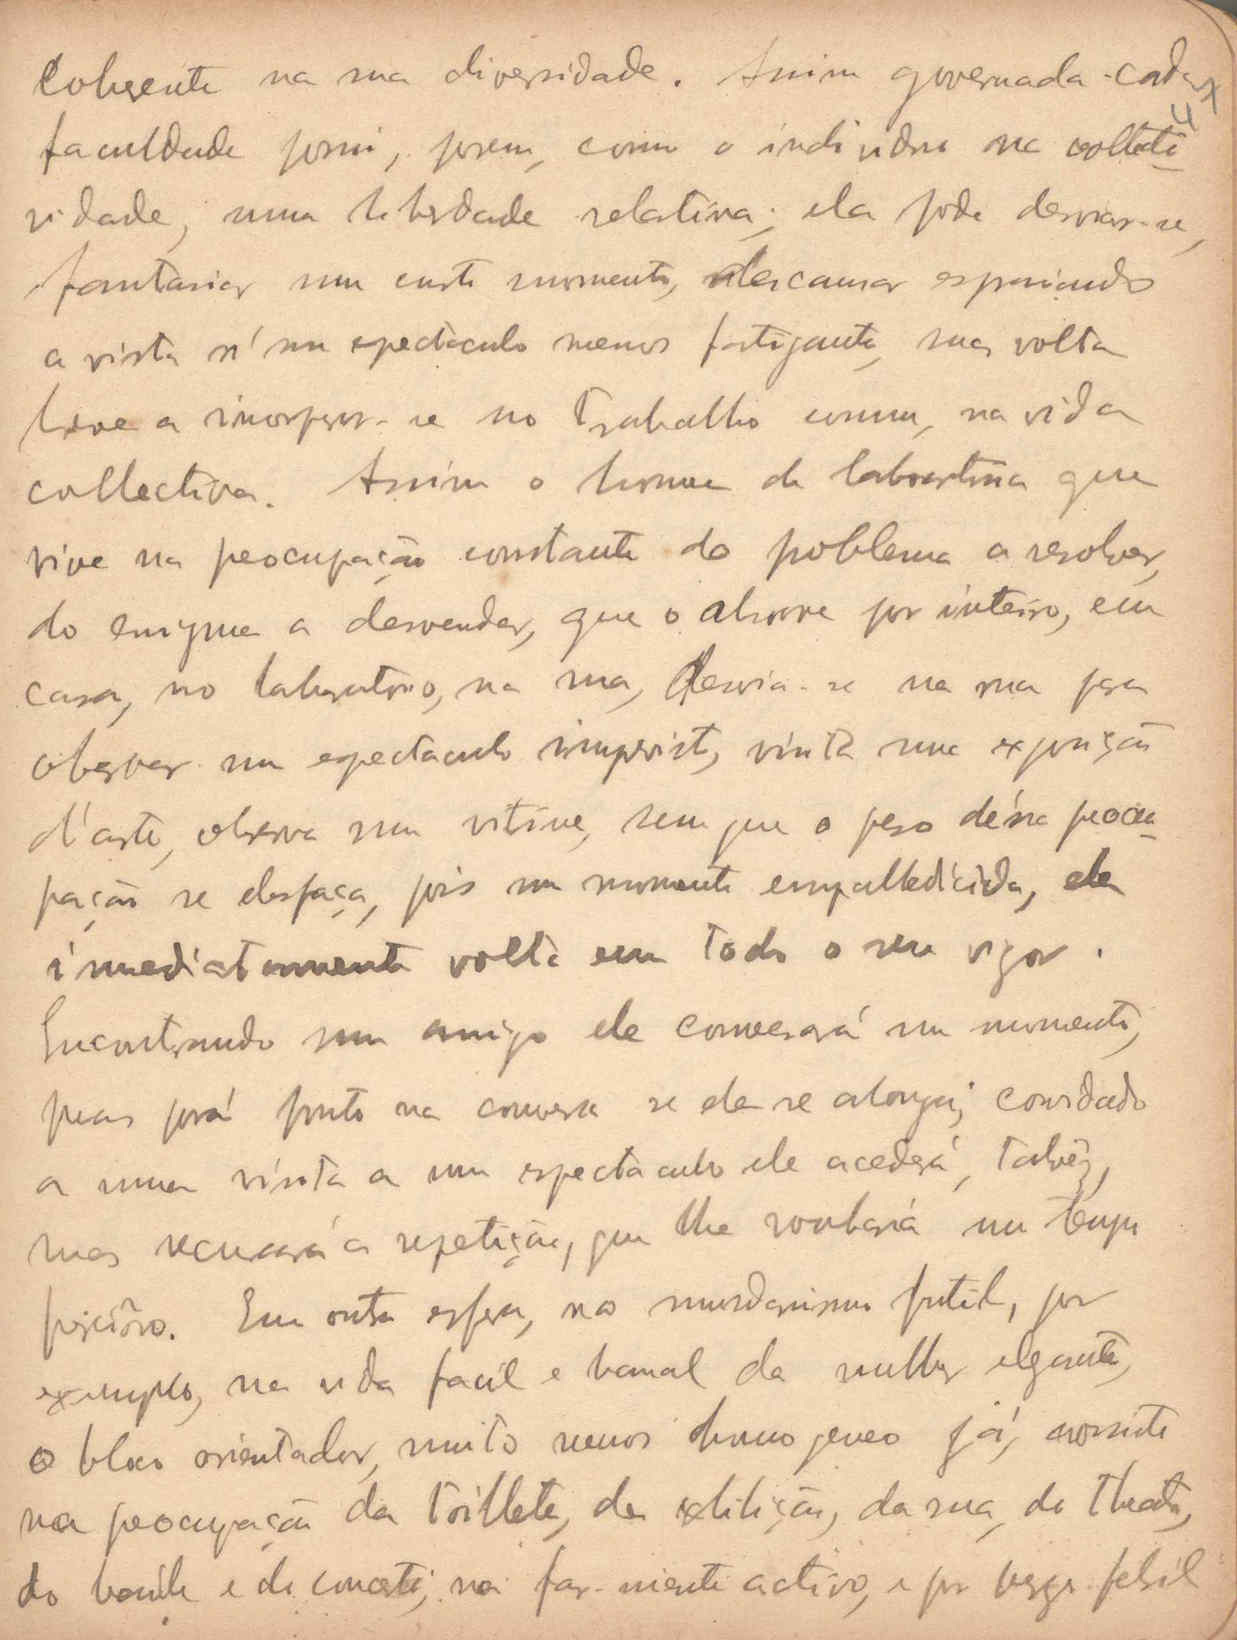 Coherente na sua diversidade. Assim governada cada x
4
faculdade possui, porem, como o individuo na collecti-
vidade, uma liberdade relativa; ela pode desviar-se,
fantasiar um curto momento, descansar espraiando
a vista n'um espectaculo menos fatigante, mas volta
breve a incorporar-se no trabalho comum, na vida
collectiva. Assim o homem de laboratorio que
vive na preocupação constante do problema a resolver,
do enigma a desvendar, que o absorve por inteiro, em
casa, no laboratorio, na rua, desvia-se na rua para
observar um espectaculo imprevisto, visita uma exposição
d'arte, observa uma vitrine, sem que o peso dessa preocu-
pação se desfaça, pois um momento empallidecida, ela
immediatamente volta em todo o seu vigor.
Encontrando um amigo ele conversará um momento,
mas porá ponto na conversa se ela se alonga; convidado
a uma visita a um espectaculo ele acederá, talvez,
mas recusará a repetição, que lhe roubaria um tempo
precioso. Em outra esfera, no mundanismo futil, por
exemplo, na vida facil e banal da mulher elegante,
o bloco orientador, muito menos homogeneo já, consiste
na preocupação da toillete, da exhibição, da rua, do theatro,
do baile e do concerto, no far-niente activo, e por vezes febril